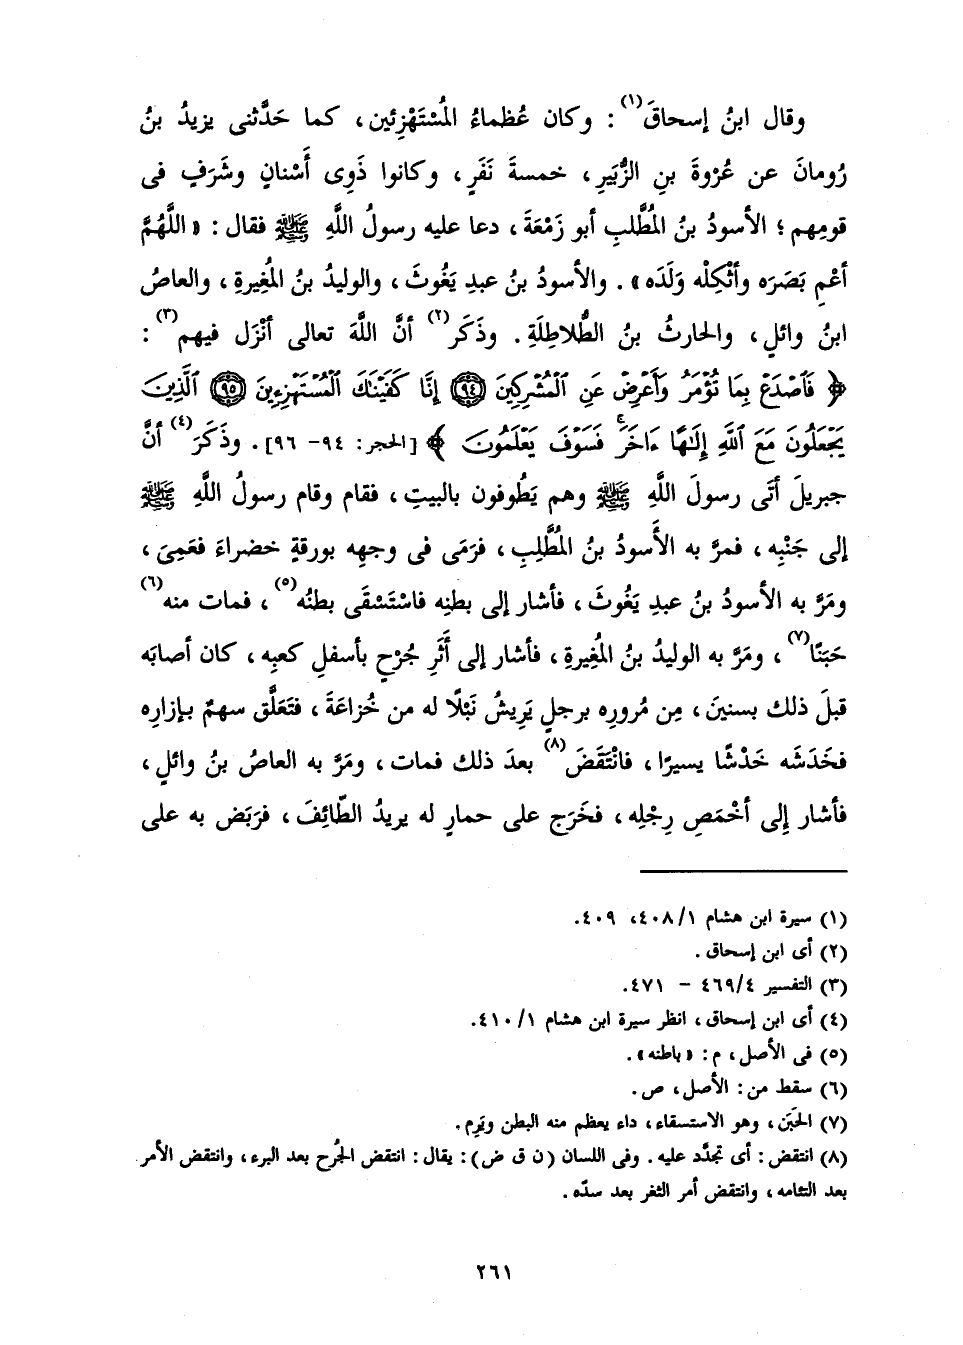 وقال ابنُ إسحاقَ(١) : وكان عُظماءُ المُسْتَهْزِئين، كما حَدَّثنى يزيدُ بنُ
رُومانَ عن عُرْوةَ بنِ الزُّبَيرِ، خمسةَ نَفَرٍ، وكانوا ذَوِى أَسْنانٍ وشَرَفٍ فى
قومِهم؛ الأسودُ بنُ المُطَّلبِ أبو زَمْعَةَ، دعا عليه رسولُ اللَّهِ ﷺ فقال: «اللَّهُمَّ
أَعْمِ بَصَرَه وأَثْكِلْه وَلَدَه». والأسودُ بنُ عبدِ يَغُوثَ، والوليدُ بنُ المُغِيرةِ، والعاصُ
ابنُ وائلٍ، والحارثُ بنُ الطُّلاطِلَةِ. وذَكَر(٢) أنَّ اللَّهَ تعالى أنْزَل فيهم(٣):
﴿ فَٱصْدَعْ بِمَا تُؤْمَرُ وَأَعْرِضْ عَنِ ٱلْمُشْرِكِينَ ٩٤ إِنَّا كَفَيْنَٰكَ ٱلْمُسْتَهْزِءِينَ ٩٥ ٱلَّذِينَ
يَجْعَلُونَ مَعَ ٱللَّهِ إِلَٰهًا ءَاخَرَ ۚ فَسَوْفَ يَعْلَمُونَ ﴾ [الحجر: ٩٤- ٩٦]. وذَكَرَ(٤) أنَّ
جبريلَ أتَى رسولَ اللَّهِ ﷺ وهم يَطُوفون بالبيتِ، فقام وقام رسولُ اللَّهِ ﷺ
إلى جَنْبِه، فمرَّ به الأَسودُ بنُ المُطَّلِبِ، فرَمَى فى وجهِه بورقةٍ خضراءَ فعَمِىَ،
ومَرَّ به الأسودُ بنُ عبدِ يَغُوثَ، فأشار إلى بطنِه فاسْتَسْقَى بطنُه(٥)، فمات منه(٦)
حَبَنًا(٧)، ومَرَّ به الوليدُ بنُ المُغِيرةِ، فأشار إلى أَثَرِ جُرْحٍ بأسفلِ كعبِه، كان أصابَه
قبلَ ذلك بسنينَ، مِن مُرورِه برجلٍ يَرِيشُ نَبْلًا له من خُزاعَةَ، فتَعَلَّق سهمٌ بإزارِه
فخَدَشَه خَدْشًا يسيرًا، فانْتَقَضَ(٨) بعدَ ذلك فمات، ومَرَّ به العاصُ بنُ وائلٍ،
فأشار إلى أخْمَصِ رِجْلِه، فخَرَج على حمارٍ له يريدُ الطّائِفَ، فرَبَض به على
(١) سيرة ابن هشام ٤٠٨/١، ٤٠٩.
(٢) أى ابن إسحاق.
(٣) التفسير ٤٦٩/٤ - ٤٧١.
(٤) أى ابن إسحاق، انظر سيرة ابن هشام ٤١٠/١.
(٥) فى الأصل، م: «باطنه».
(٦) سقط من: الأصل، ص.
(٧) الحَبَن، وهو الاستسقاء، داء يعظم منه البطن ويَرِم.
(٨) انتقض: أى تجدَّد عليه. وفى اللسان (ن ق ض): يقال: انتقض الجُرح بعد البرء، وانتقض الأمر
بعد التئامه، وانتقض أمر الثغر بعد سدّه.
٢٦١